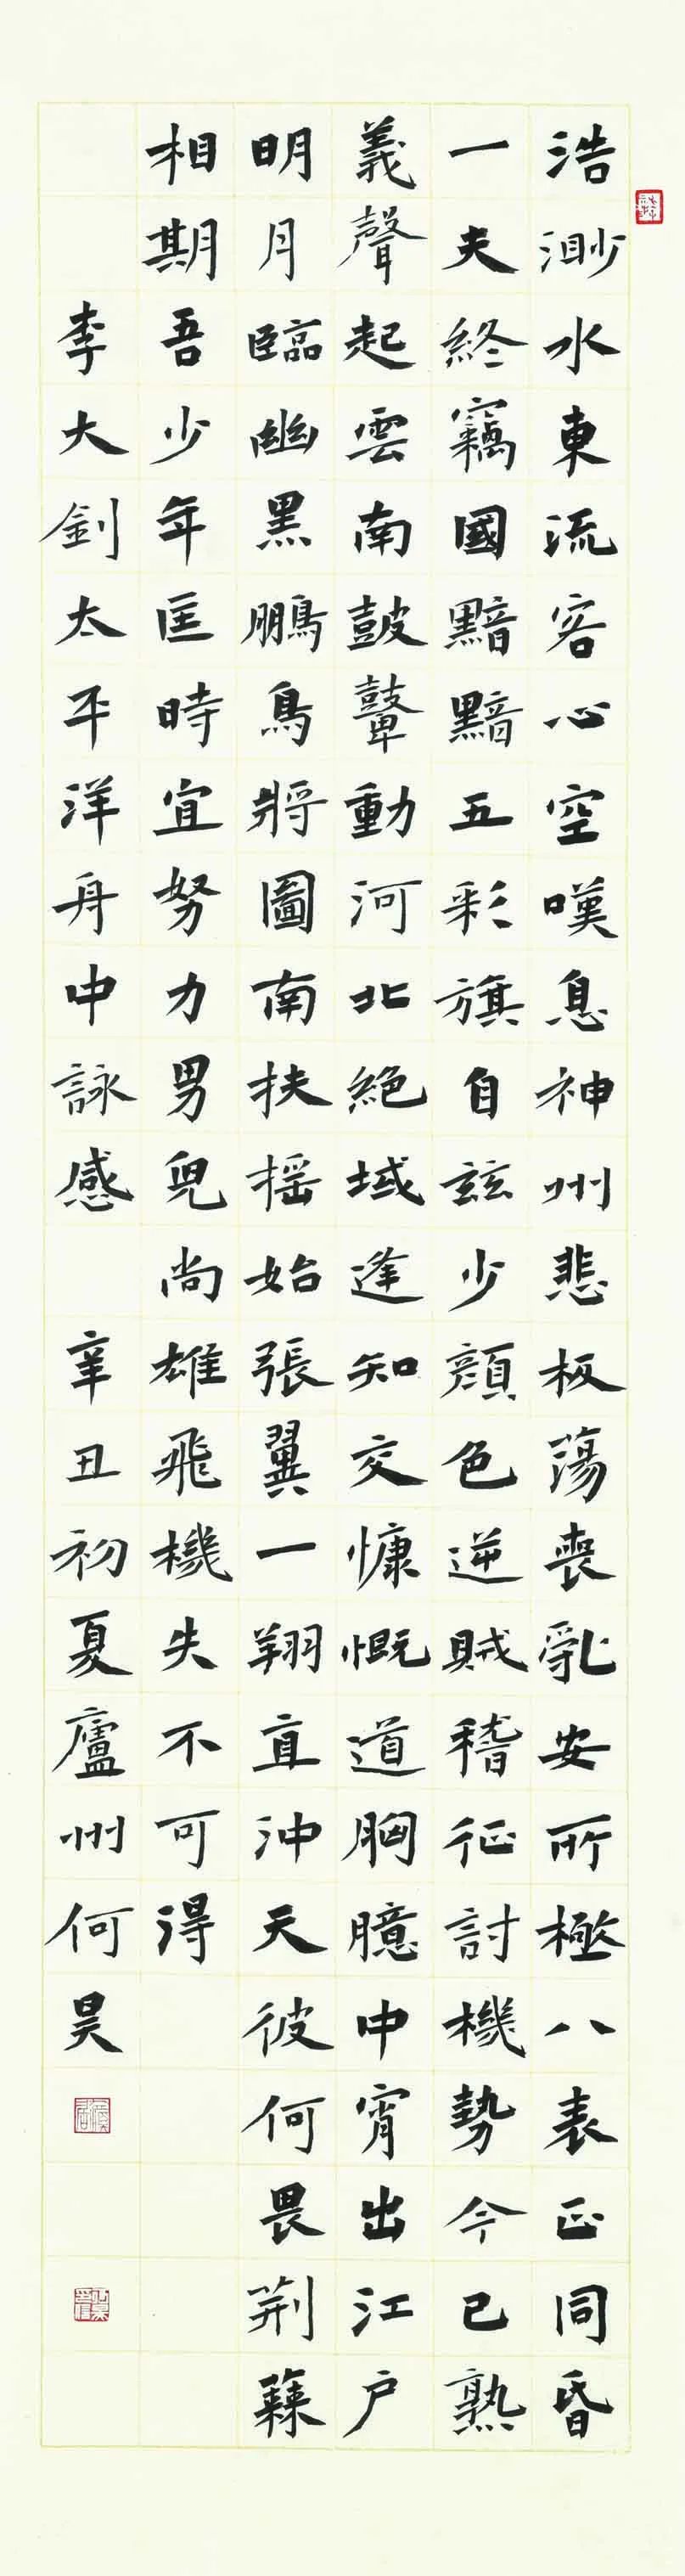 浩渺水東流客心空嘆息神州悲板蕩喪亂安所極八表正同昏
一夫終竊國黯黯五彩旗自茲少顏色逆賊稽征討機勢今已熟
義聲起雲南鼓鼙動河北絕域逢知交慷慨道胸臆中宵出江户
明月臨幽黑鵬鳥將圖南扶搖始張翼一翔直沖天彼何畏荆棘
相期吾少年匡時宜努力男兒尚雄飛機失不可得
李大釗太平洋舟中詠感 辛丑初夏廬州何昊